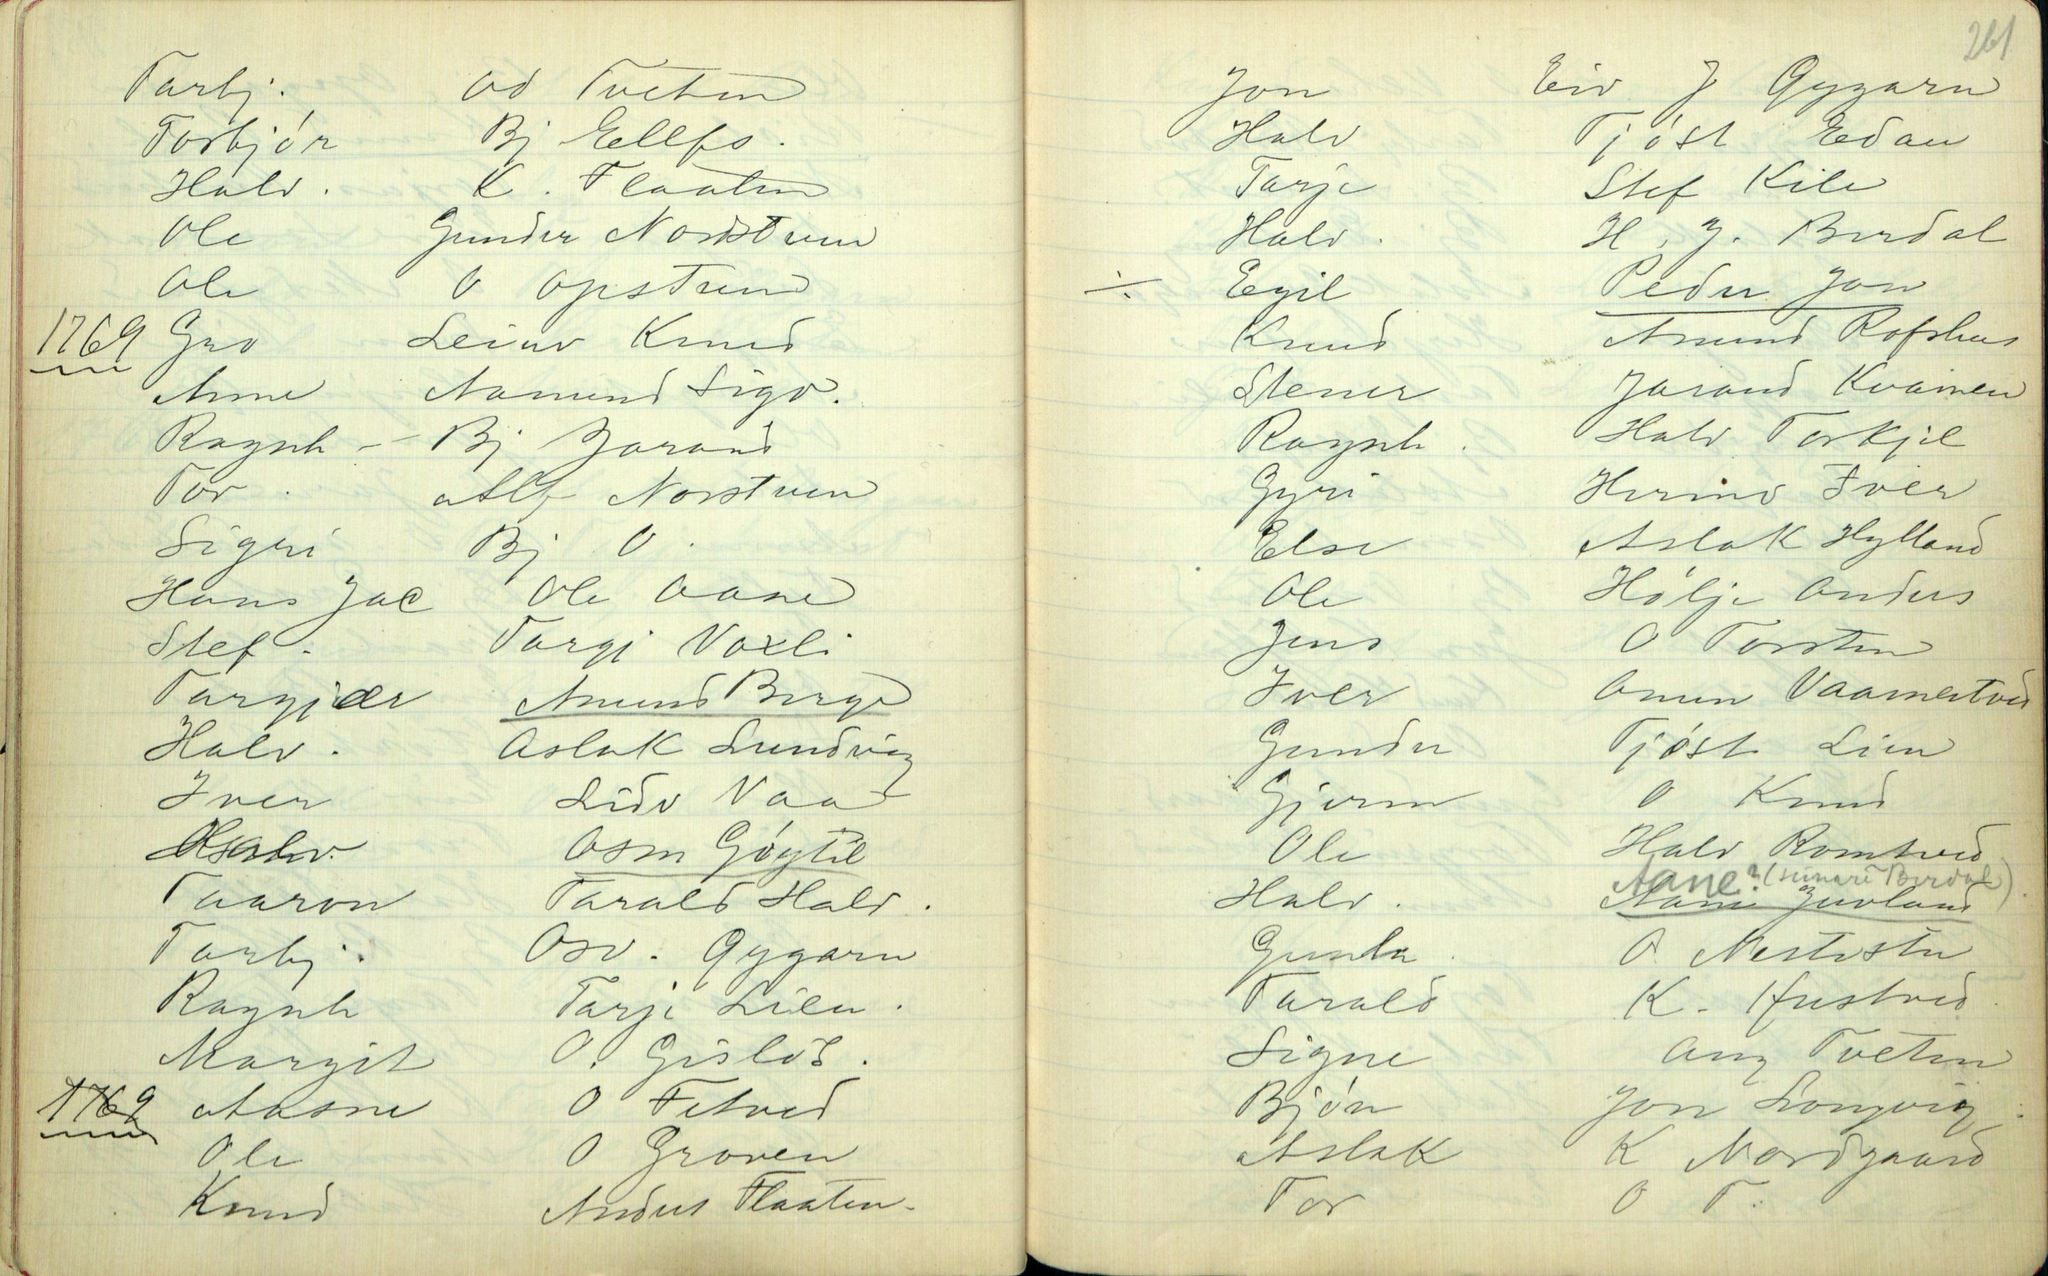 Tarbj. Od Tveten
Torbjór Bj Ellefs.
Halv. K. Flaaten
Ole Gunder Nordstuen
Ole O Opstuen
1769 Gro Leiuv Knud
Anne Aamund Sigv.
Ragnh - Bj Jarand
Tor. Alf Norstuen
Sigri Bj O.
Hans Jac Ole Aase
Stef. Targj Vaxli
Targjær Amund Berge
Halv. Aslak Lundvig
Iver Lidv Vaa
Halv. Osm Góytil
Taaron Tarald Halv.
Tarbj. Osv. Gygarn
Ragnh Tarje Lien.
Margit O. Gisløs.
1769 Aasne O Fetved
Ole O Groven
Knud Anders Flaaten.
261
Jon Eiv J Gygarn
Halv Tjóst Edan
Tarje Stef Kile
Halv. H. J. Berdal
÷ Egil Peder Jon
Knud Amund Rofshus
Stener Jarand Kvamen
Ragnh. Halv Torkjil
Gyri Hermo Iver
Else Aslak Hylland
Ole Hólje Anders
Jens O Torsten
Iver Onun Vaamertved
Gunder Tjóst Lien
Gjerm O Knud
Ole Halv Romtved
Aane? (sunari Berdal)
Halv. Aani Juvland
Gunla. O. Mestestu
Tarald K. Hustved.
Signe Ang Tveten
Bjón Jon Longvig.
Aslak K Nordgaard
Tor O T.